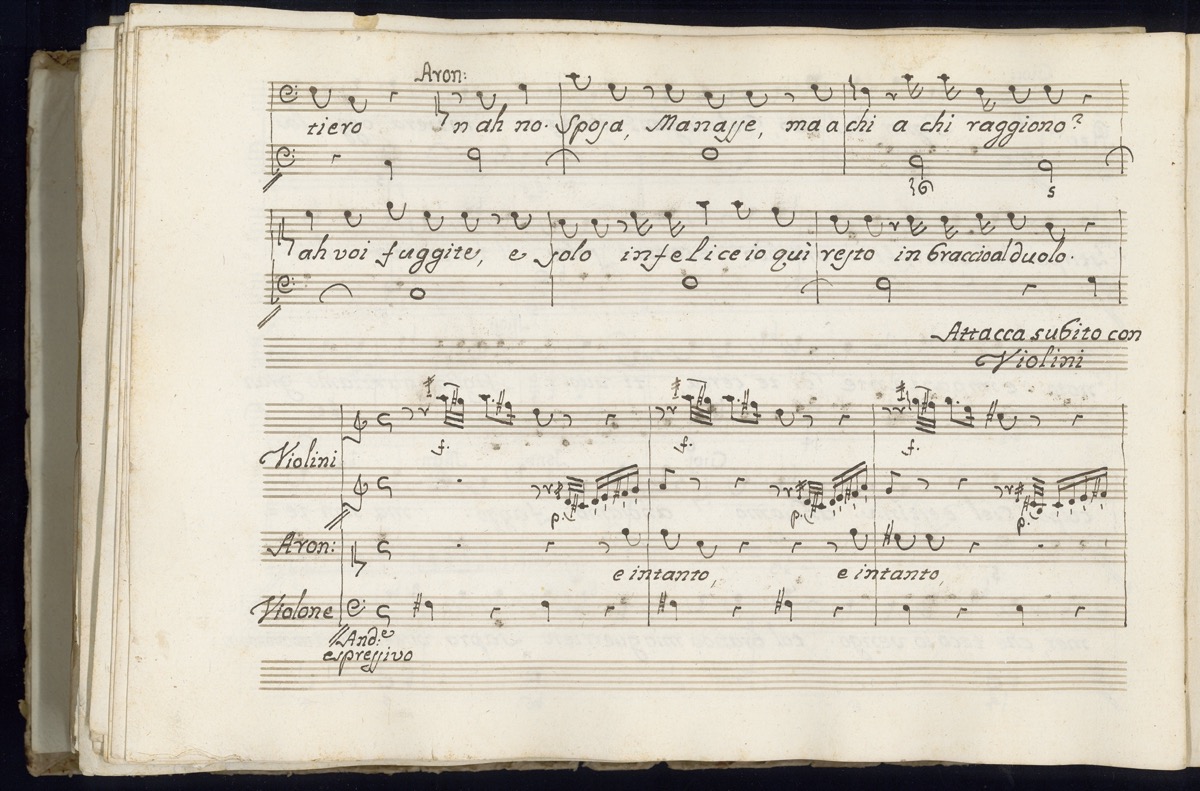 Aron:
tiero n ah no. Sposa, Manasse, ma a chi a chi raggiono?
6 5
ah voi fuggite, e solo infelice io quì resto in braccio al duolo.
Attacca subito con
Violini
f. f. f.
Violini
p. p. p.
Aron:
e intanto, e intanto,
Violone
And.e
espressivo